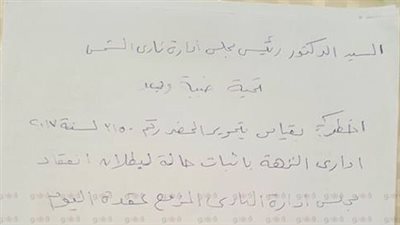 السيد الدكتور رئيس مجلس ادارة نادى الشمس
تحية طيبة وبعد
اخطركم بقيامى بتحرير المحضر رقم ٢١٥٠ لسنة ٢٠١٧
ادارى النزهة باثبات حالة لبطلان انعقاد
مجلس ادارة النادى المزمع عقدة اليوم